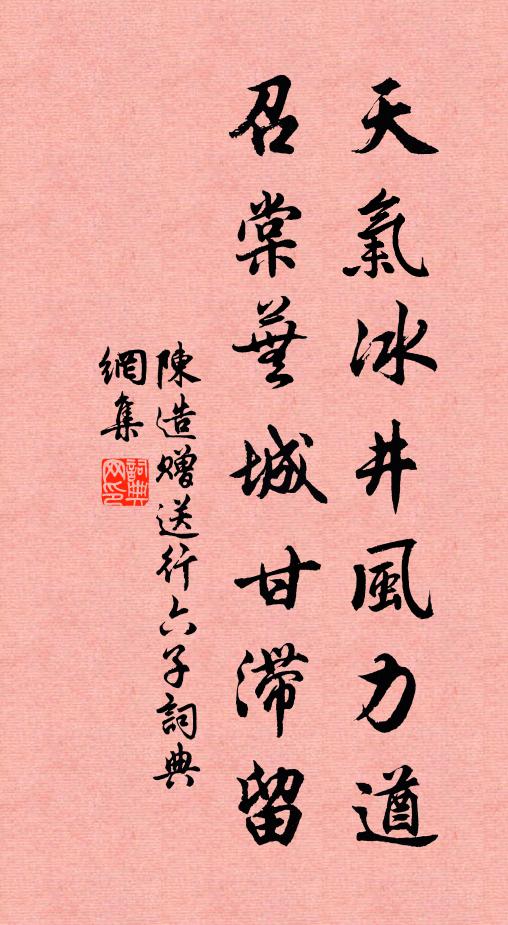 天氣冰井風力遒
召棠蕪城甘滯留
陳造贈送行六子詞典
網集
詞典網印